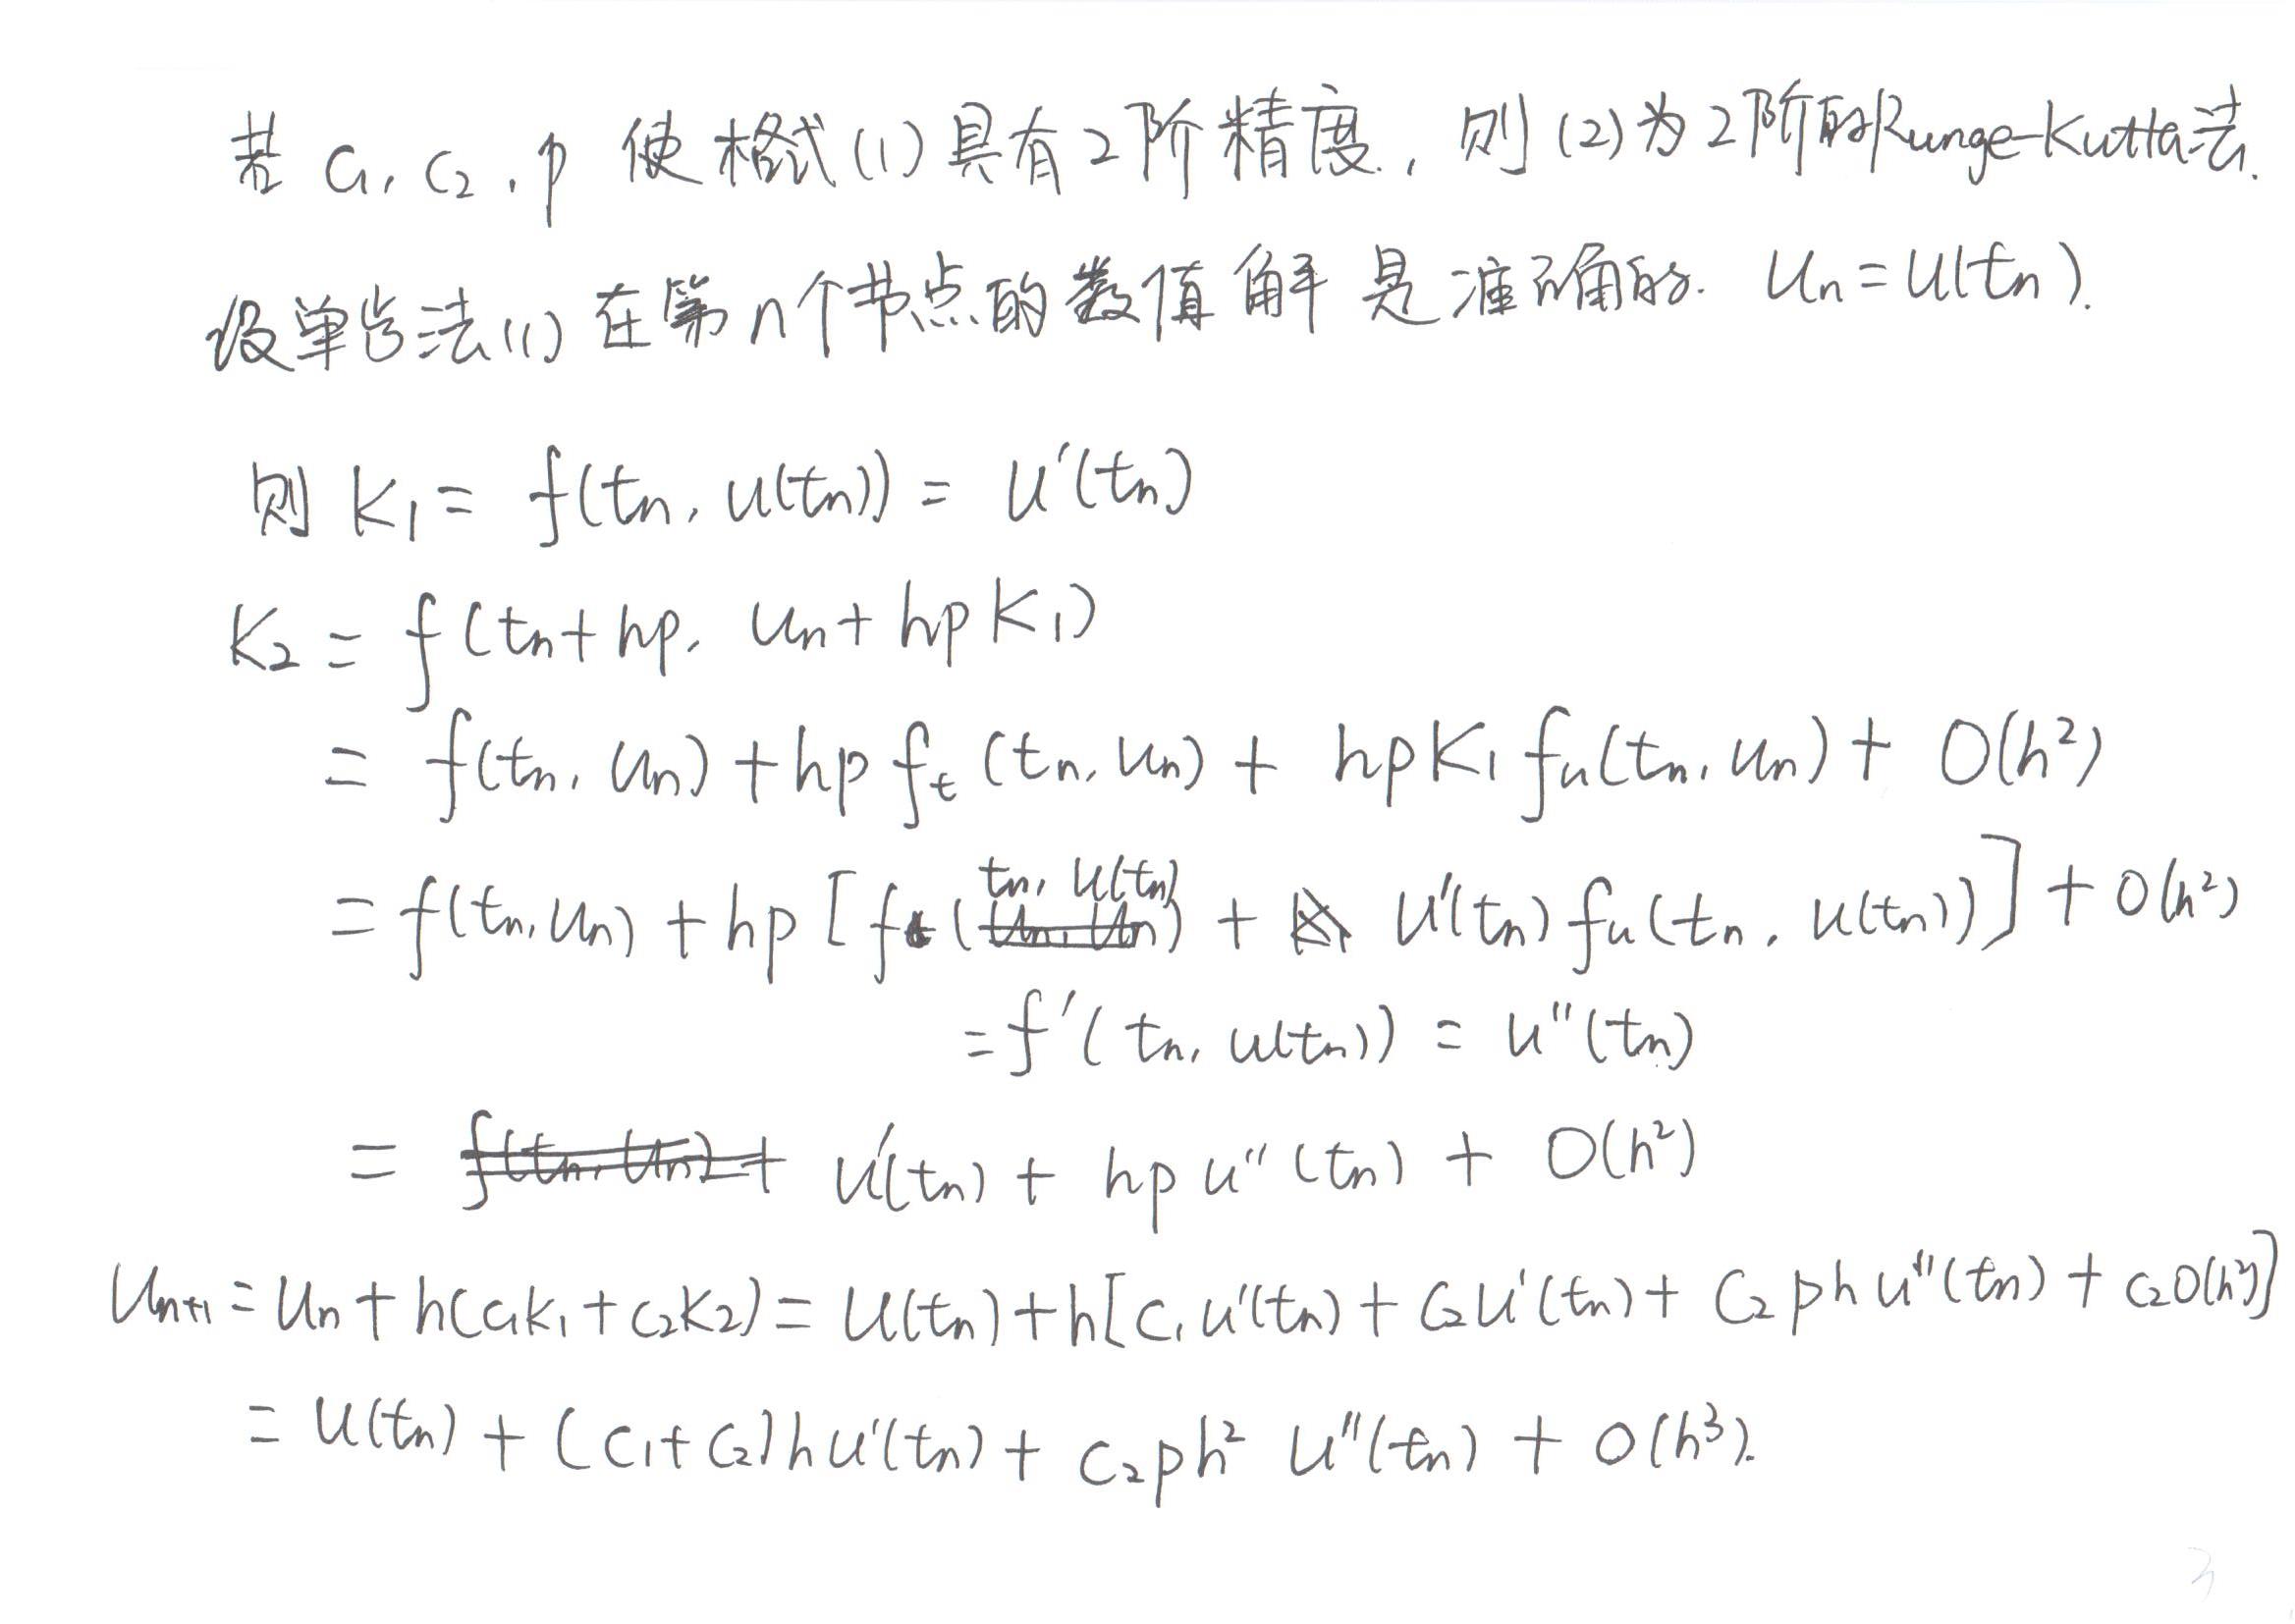 若 C₁, C₂, p 使格式(1)具有2阶精度, 则(2)为2阶的Runge-Kutta法.
设单步法(1)在第n个节点的数值解是准确的. Uₙ=U(tₙ).
则 K₁ = f(tₙ, u(tₙ)) = u'(tₙ)
K₂ = f(tₙ+hp, uₙ+hpK₁)
= f(tₙ, uₙ) + hp fₜ(tₙ, uₙ) + hpK₁ fᵤ(tₙ, uₙ) + O(h²)
= f(tₙ, uₙ) + hp [fₜ(tₙ, u(tₙ)) + u'(tₙ) fᵤ(tₙ, u(tₙ))] + O(h²)
= f'(tₙ, u(tₙ)) = u''(tₙ)
= u'(tₙ) + hp u''(tₙ) + O(h²)
Uₙ₊₁ = Uₙ + h(C₁K₁ + C₂K₂) = U(tₙ) + h[C₁u'(tₙ) + C₂u'(tₙ) + C₂ph u''(tₙ) + C₂O(h²)]
= U(tₙ) + (C₁+C₂)hu'(tₙ) + C₂ph² u''(tₙ) + O(h³).